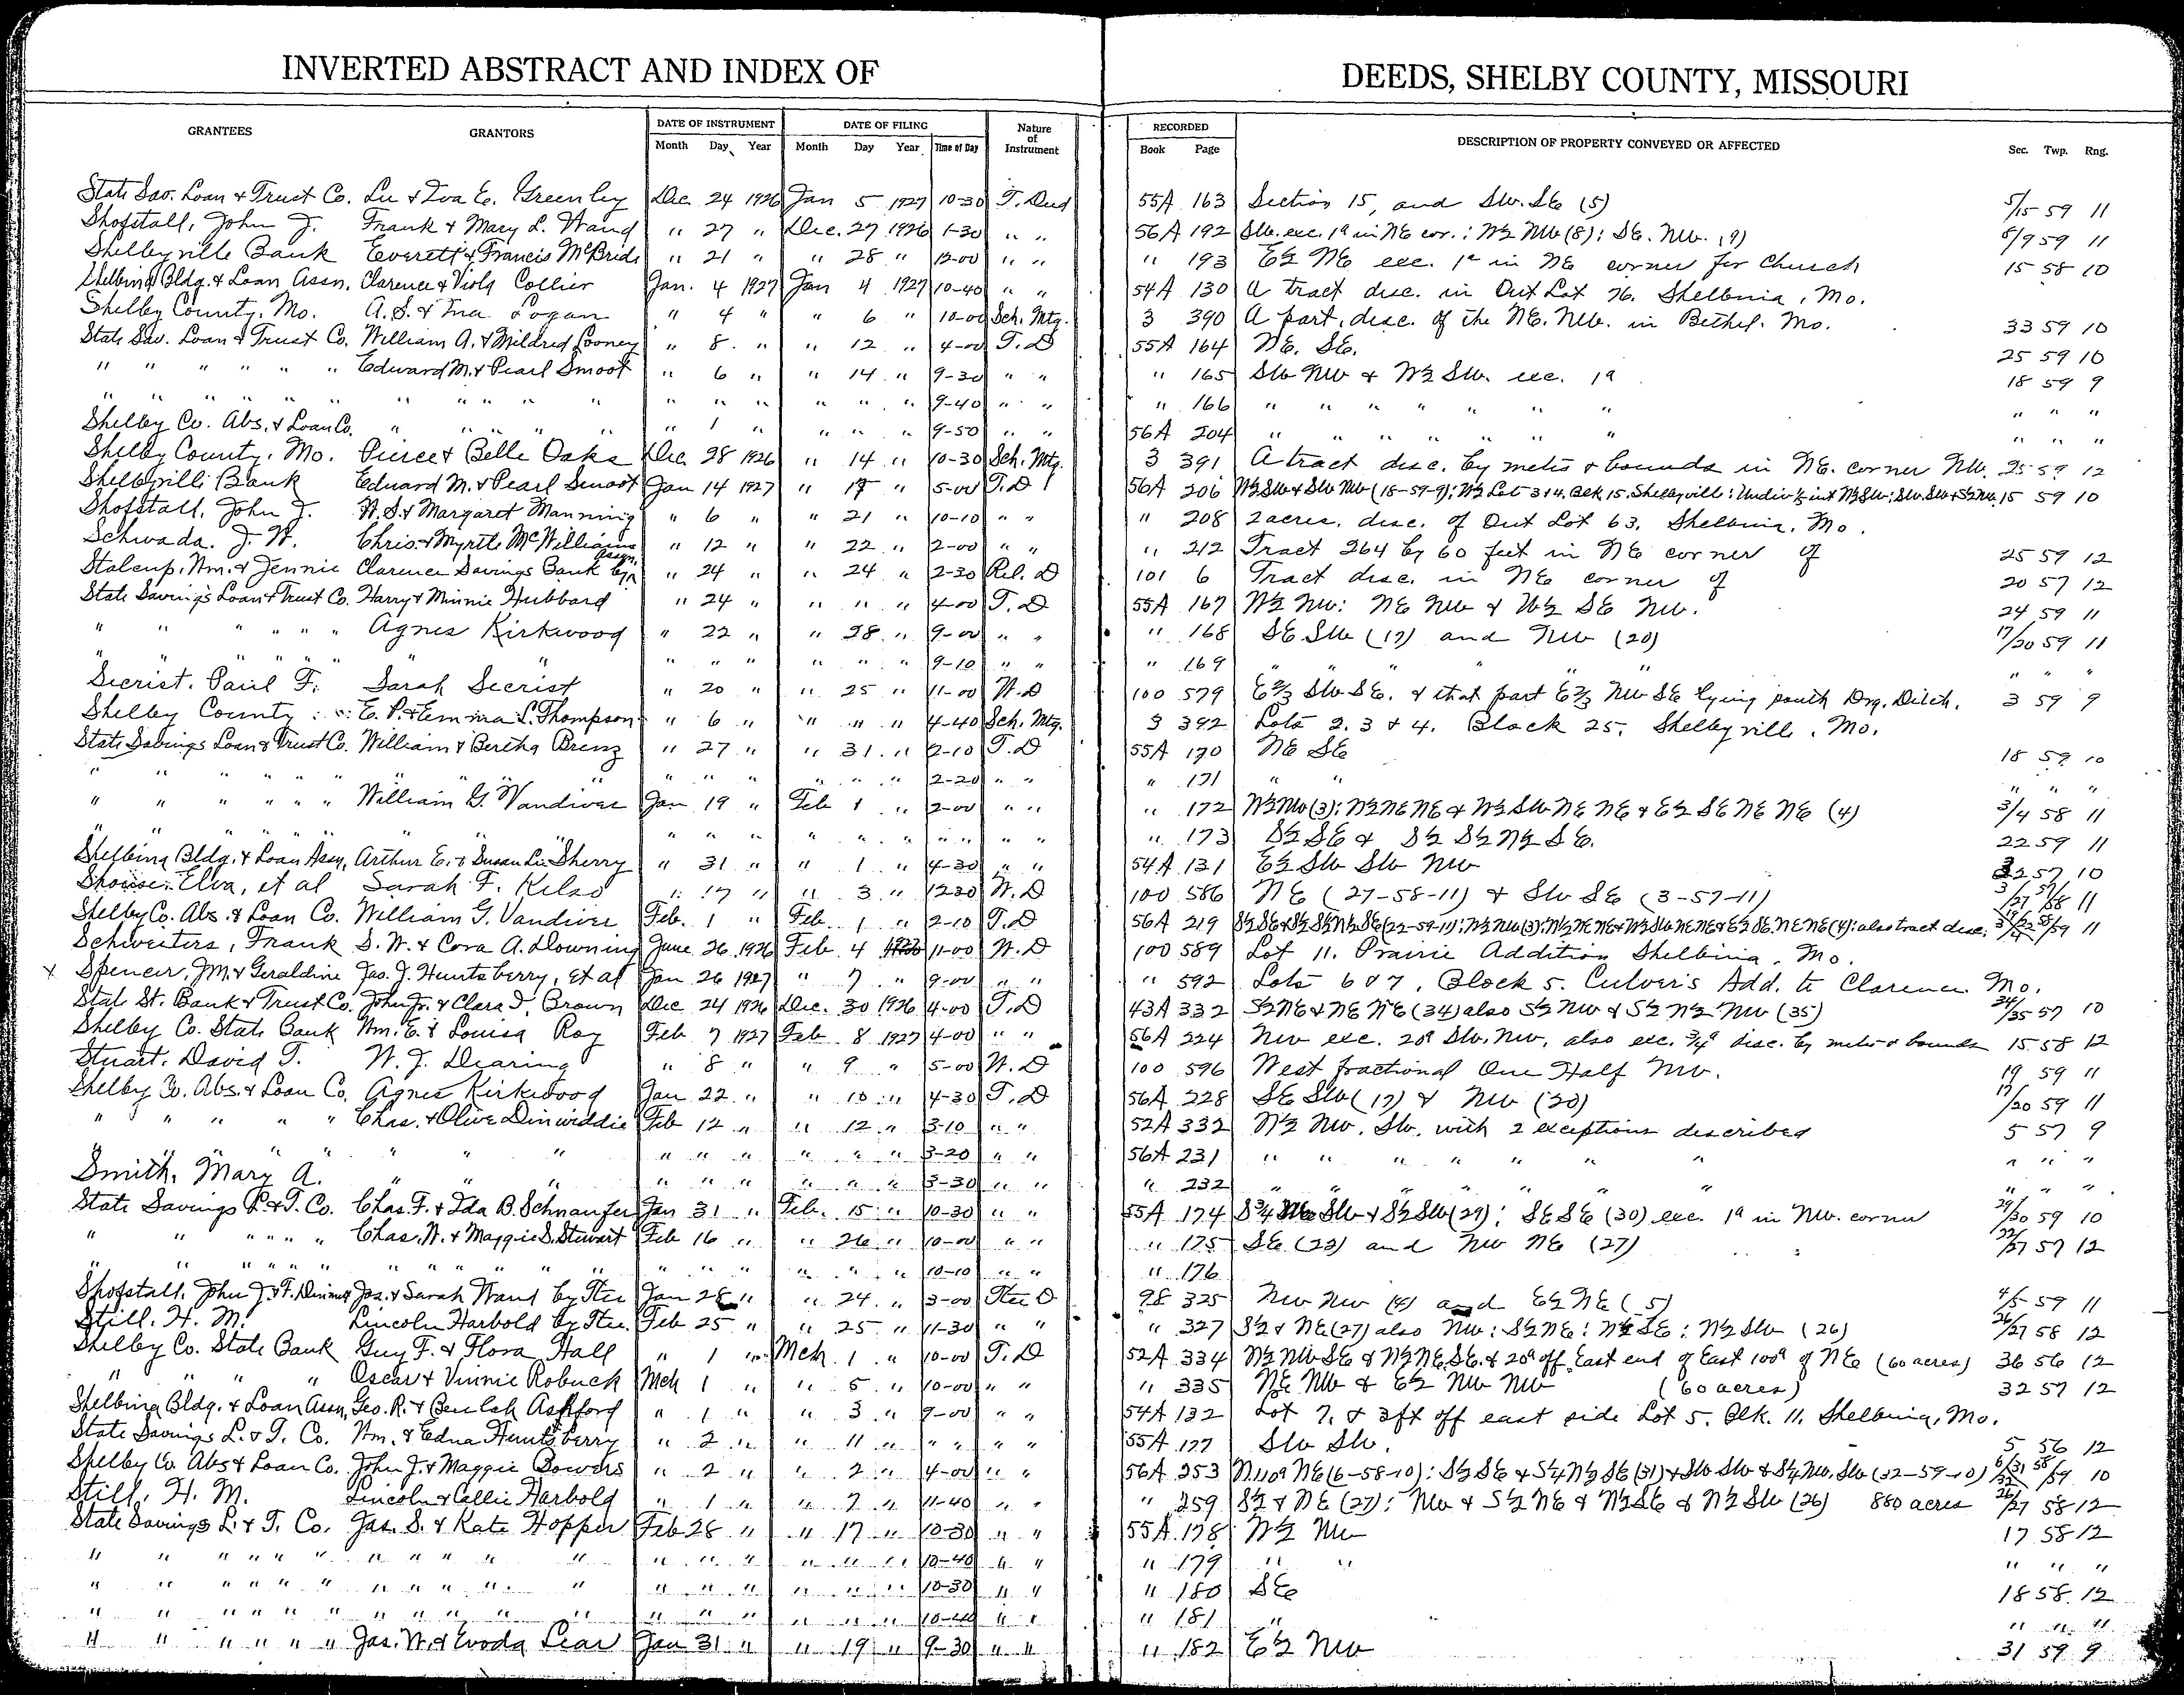 INVERTED ABSTRACT AND INDEX OF DEEDS, SHELBY COUNTY, MISSOURI
GRANTEES GRANTORS DATE OF INSTRUMENT DATE OF FILING Nature of Instrument RECORDED DESCRIPTION OF PROPERTY CONVEYED OR AFFECTED Sec. Twp. Rng.
Month Day Year Month Day Year Time of Day Book Page
State Sav. Loan & Trust Co. Lee & Iva E. Greenley Dec 24 1926 Jan 5 1927 10-30 T. Deed 55A 163 Section 15, and SW. SE (5) 5/15 59 11
Shofstall, John J. Frank & Mary L. Wand " 27 " Dec. 27 1926 1-30 " " 56A 192 SW. exc. 1a in NE cor.: W½ NW (8): SE. NW. (9) 8/9 59 11
Shelbyville Bank Everett & Francis McBride " 21 " " 28 " 12-00 " " " 193 E½ NE exc. 1a in NE corner for Church 15 58 10
Shelbina Bldg. & Loan Assn. Clarence & Viola Collier Jan. 4 1927 Jan 4 1927 10-40 " " 54A 130 A tract desc. in Out Lot 76. Shelbina, Mo.
Shelby County, Mo. A. S. & Ina Logan " 4 " " 6 " 10-00 Sch. Mtg. 3 390 A part, desc. of the NE. NW. in Bethel. Mo. 33 59 10
State Sav. Loan & Trust Co. William A. & Mildred Looney " 8. " " 12 " 4-00 T. D 55A 164 NE. SE. 25 59 10
" " " " " " Edward M. & Pearl Smoot " 6 " " 14 " 9-30 " " " 165 SW NW & W½ SW. exc. 1a 18 59 9
" " " " " " " " " " " " " " " " " 9-40 " " " 166 " " " " " " " " " "
Shelby Co. Abs. & Loan Co. " " " " " " 1 " " " " 9-50 " " 56A 204 " " " " " " " " " "
Shelby County, Mo. Pierce & Belle Oaks Dec 28 1926 " 14 " 10-30 Sch. Mtg. 3 391 A tract desc. by metes & bounds in NE. corner NW. 25 59 12
Shelbyville Bank Edward M. & Pearl Smoot Jan 14 1927 " 17 " 5-00 T. D 56A 206 W½ SW & SW NW (18-59-9); W½ Lot 3 & 4. Blk 15. Shelbyville: Undiv ½ int W½ SW: SW. SW & S½ NW. 15 59 10
Shofstall, John J. W. S. & Margaret Manning " 6 " " 21 " 10-10 " " " 208 2 acres. desc. of Out Lot 63. Shelbina, Mo.
Schwada. J. W. Chris. & Myrtle McWilliams " 12 " " 22 " 2-00 " " " 212 Tract 264 by 60 feet in NE corner of 25 59 12
Stalcup, Wm. & Jennie Clarence Savings Bank by Assgn. " 24 " " 24 " 2-30 Rel. D 101 6 Tract desc. in NE corner of 20 57 12
State Savings Loan & Trust Co. Harry & Minnie Hubbard " 24 " " " " 4-00 T. D 55A 167 W½ NW: NE NW & W½ SE NW. 24 59 11
" " " " " " Agnes Kirkwood " 22 " " 28 " 9-00 " " " 168 SE SW (17) and NW (20) 17/20 59 11
" " " " " " " " " " " " " 9-10 " " " 169 " " " " " " "
Secrist, Paul F. Sarah Secrist " 20 " " 25 " 11-00 W. D 100 579 E⅔ SW SE. & that part E⅔ NW SE lying south Drg. Ditch. 3 59 9
Shelby County E. P. & Emma L. Thompson " 6 " " " " 4-40 Sch. Mtg. 3 392 Lots 2. 3 & 4. Block 25, Shelbyville, Mo.
State Savings Loan & Trust Co. William & Bertha Brenz " 27 " " 31 " 2-10 T. D 55A 170 NE SE 18 59 10
" " " " " " " " " " " " " " 2-20 " " " 171 " " " " "
" " " " " " William G. Vandiver Jan 19 " Feb 1 " 2-00 " " " 172 W½ NW (3): W½ NE NE & W½ SW NE NE & E½ SE NE NE (4) 3/4 58 11
" " " " " " " " " " " " " " " " " 173 S½ SE & S½ S½ N½ SE. 22 59 11
Shelbina Bldg. & Loan Assn, Arthur E. & Susan Lee Sherry " 31 " " 1 " 4-30 " " 54A 131 E½ SW SW NW 32 57 10
Shouse, Elva, et al Sarah F. Kelso " 17 " " 3 " 12-30 W. D 100 586 NE (27-58-11) & SW SE (3-57-11) 3/27 57/58 11
Shelby Co. Abs. & Loan Co. William G. Vandiver Feb. 1 " Feb. 1 " 2-10 T. D 56A 219 S½ SE & S½ S½ N½ SE (22-59-11); W½ NW (3); W½ NE NE & W½ SW NE NE & E½ SE. NE NE (4); also tract desc. 58/59 11
Schwieters, Frank S. W. & Cora A. Downing June 26 1926 Feb 4 1926 11-00 W. D 100 589 Lot 11. Prairie Addition Shelbina, Mo.
x Spencer, J. M. & Geraldine Jas. J. Huntsberry, et al Jan 26 1927 " 7 " 9-00 " " " 592 Lots 6 & 7, Block 5. Culver's Add. to Clarence Mo.
State St. Bank & Trust Co. John Jr. & Clara J. Brown Dec 24 1926 Dec. 30 1926 4-00 T. D 43A 332 S½ NE & NE NE (34) also S½ NW & S½ N½ NW (35) 34/35 57 10
Shelby Co. State Bank Wm. E. & Louisa Roy Feb 7 1927 Feb 8 1927 4-00 " " 56A 224 NW exc. 20a SW. NW, also exc. ¾a desc. by metes & bounds 15 58 12
Stuart, David T. W. J. Dearing " 8 " " 9 " 5-00 W. D 100 596 West fractional One Half NW. 19 59 11
Shelby Co. Abs. & Loan Co. Agnes Kirkwood Jan 22 " " 10 " 4-30 T. D 56A 228 SE SW (17) & NW (20) 17/20 59 11
" " " " " Chas. & Olive Dinwiddie Feb 12 " " 12 " 3-10 " " 52A 332 N½ NW. SW. with 2 exceptions described 5 57 9
" " " " " " " " " " " " " 3-20 " " 56A 231 " " " " " " " " " "
Smith, Mary A. " " " " " " " " " 3-30 " " " 232 " " " " " " " " "
State Savings L. & T. Co. Chas. F. & Ida B. Schnaufer Jan 31 " Feb. 15 " 10-30 " " 55A 174 S¾ SW & S½ SW (29); SE SE (30) exc. 1a in NW. corner 29/30 59 10
" " " " " " Chas. W. & Maggie S. Stewart Feb 16 " " 26 " 10-00 " " " 175 SE (22) and NW NE (27) 22/27 57 12
" " " " " " " " " " " " " " " " " 10-10 " " " 176
Shofstall, John J. & F. Dimmitt Jas. & Sarah Wand by Stee Jan 28 " " 24 " 3-00 Stee D 98 325 NW NW (4) and E½ NE (5) 4/5 59 11
Still, H. M. Lincoln Harbold by Stee. Feb 25 " " 25 " 11-30 " " " 327 S½ & NE (27) also NW: S½ NE: N½ SE: N½ SW (26) 26/27 58 12
Shelby Co. State Bank Guy F. & Flora Hall " 1 " Mch. 1 " 10-00 T. D 52A 334 N½ NW SE & N½ NE, SE. & 20a off East end of East 100a of NE (60 acres) 36 56 12
" " " " Oscar & Vinnie Robuck Mch 1 " " 5 " 10-00 " " " 335 NE NW & E½ NW NW (60 acres) 32 57 12
Shelbina Bldg. & Loan Assn, Geo. R. & Beulah Ashford " 1 " " 3 " 9-00 " " 54A 132 Lot 7. & 3ft off east side Lot 5. Blk. 11. Shelbina, Mo.
State Savings L. & T. Co. Wm. & Edna Huntsberry " 2 " " 11 " " " " " 55A 177 SW SW. 5 56 12
Shelby Co Abs & Loan Co. John J. & Maggie Bowers " 2 " " 2 " 4-00 " " 56A 253 N. 110a NE (6-58-10): S½ SE & S¼ N½ SE (31) & SW SW & S¼ NW. SW (32-59-10) 6/31 58/59 10
Still, H. M. Lincoln & Callie Harbold " 1 " " 7 " 11-40 " " " 259 S½ & NE (27): NW & S½ NE & N½ SE & N½ SW (26) 880 acres 26/27 58 12
State Savings L. & T. Co. Jas. S. & Kate Hopper Feb 28 " " 17 " 10-30 " " 55A 178 W½ NW 17 58 12
" " " " " " " " " " " " " " " " " 10-40 " " " 179 " " " " "
" " " " " " " " " " " " " " " " " 10-30 " " " 180 SE 18 58 12
" " " " " " " " " " " " " " " " " 10-40 " " " 181 " " " "
" " " " " " Jas. W. & Evoda Lear Jan 31 " " 19 " 9-30 " " " 182 E½ NW 31 59 9